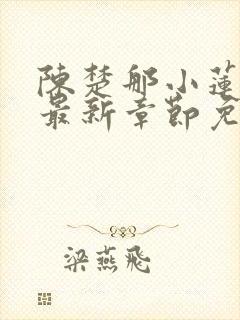 陳楚那小蓮
最新章節免
梁燕飛